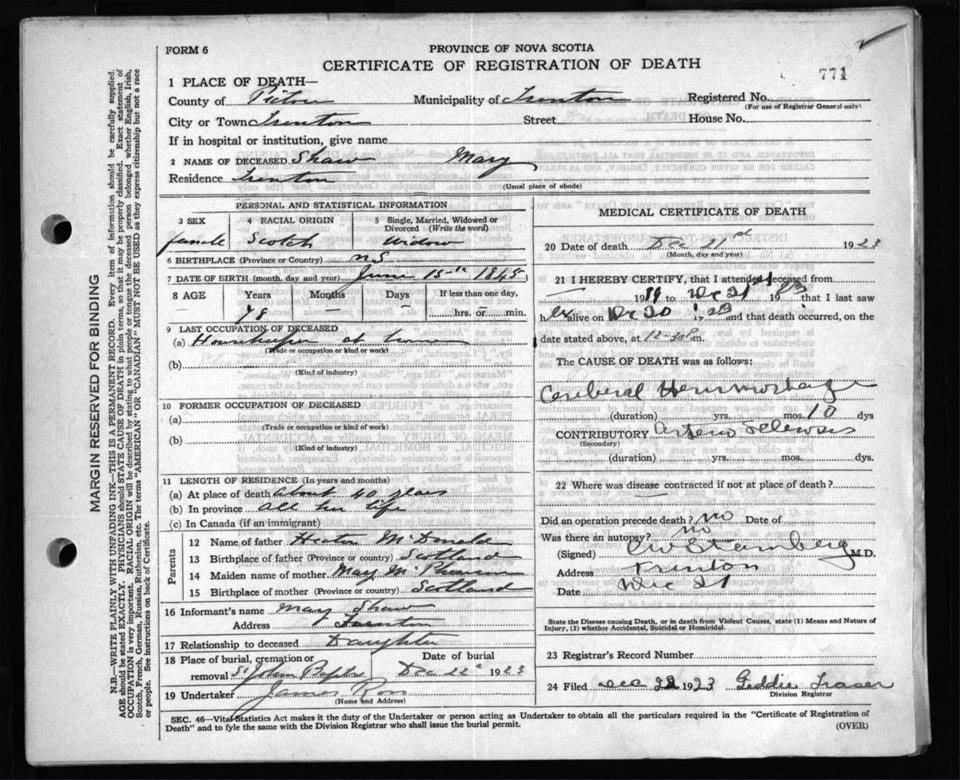 FORM 6
PROVINCE OF NOVA SCOTIA
CERTIFICATE OF REGISTRATION OF DEATH
771
1 PLACE OF DEATH—
County of Pictou Municipality of Trenton Registered No.
(For use of Registrar General only)
City or Town Trenton Street House No.
If in hospital or institution, give name
2 NAME OF DECEASED Shaw Mary
Residence Trenton
(Usual place of abode)
PERSONAL AND STATISTICAL INFORMATION
3 SEX
female
4 RACIAL ORIGIN
Scotch
5 Single, Married, Widowed or Divorced (Write the word)
Widow
6 BIRTHPLACE (Province or Country) N.S.
7 DATE OF BIRTH (month, day and year) June 15th 1845
8 AGE Years Months Days If less than one day,
78 — — hrs. or min.
9 LAST OCCUPATION OF DECEASED
(a) Housekeeper at home
(Trade or occupation or kind or work)
(b)
(Kind of industry)
10 FORMER OCCUPATION OF DECEASED
(a)
(Trade or occupation or kind or work)
(b)
(Kind of industry)
11 LENGTH OF RESIDENCE (In years and months)
(a) At place of death about 40 years
(b) In province all her life
(c) In Canada (if an immigrant)
Parents
12 Name of father Hector McDonald
13 Birthplace of father (Province or country) Scotland
14 Maiden name of mother Mary McPherson
15 Birthplace of mother (Province or country) Scotland
16 Informant's name Mary Shaw
Address Trenton
17 Relationship to deceased Daughter
18 Place of burial, cremation or removal Date of burial
St John Dec 22 1923
19 Undertaker James Ross
(Name and Address)
MEDICAL CERTIFICATE OF DEATH
20 Date of death Dec 21st 1923
(Month, day and year)
21 I HEREBY CERTIFY, that I attended deceased from
19 to Dec 21 19 that I last saw
her alive on Dec 20 '23 and that death occurred, on
date stated above, at 12-30 m.
The CAUSE OF DEATH was as follows:
Cerebral Hemmorhage
(duration) yrs. mos. 10 dys
CONTRIBUTORY Arterio Sclerosis
(Secondary)
(duration) yrs. mos. dys.
22 Where was disease contracted if not at place of death?
Did an operation precede death? no Date of
Was there an autopsy? no
(Signed) M.D.
Address Trenton
Date Dec 21
State the Disease causing Death, or in death from Violent Causes, state (1) Means and Nature of Injury, (2) whether Accidental, Suicidal or Homicidal.
23 Registrar's Record Number
24 Filed Dec 22 1923 Fraser
Division Registrar
SEC. 46—Vital Statistics Act makes it the duty of the Undertaker or person acting as Undertaker to obtain all the particulars required in the "Certificate of Registration of
Death" and to fyle the same with the Division Registrar who shall issue the burial permit.
(OVER)
MARGIN RESERVED FOR BINDING
N.B.—WRITE PLAINLY WITH UNFADING INK—THIS IS A PERMANENT RECORD. Every item of information should be carefully supplied.
AGE should be stated EXACTLY. PHYSICIANS should STATE CAUSE OF DEATH in plain terms, so that it may be properly classified. Exact statement of
OCCUPATION is very important. RACIAL ORIGIN will be described by stating to what people or tongue the deceased person belonged whether English, Irish,
Scotch, French, German, Russian, Ruthenian, etc. The terms "AMERICAN" OR "CANADIAN" MUST NOT BE USED as they express citizenship but not a race
or people. See instructions on back of Certificate.